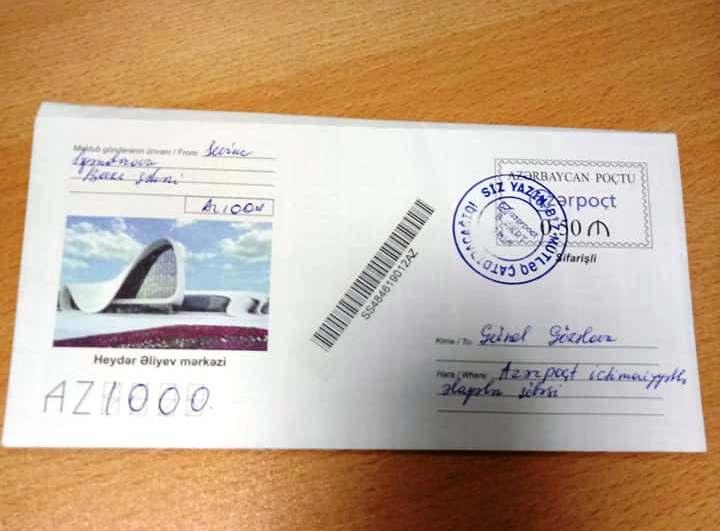 Məktub göndərənin ünvanı / From: Sevinc
Bakı şəhəri
AZ1004
Heydər Əliyev mərkəzi
AZ1000
SS484619012AZ
AZƏRBAYCAN POÇTU
azərpoçt
0.50 ₼
Sifarişli
SİZ YAZIN BİZ MÜTLƏQ ÇATDIRACAĞIQ!
azərpoct
Kimə / To: Günel Gözəlova
Hara / Where: Azərpoçt ictimaiyyətlə
əlaqələr şöbəsi